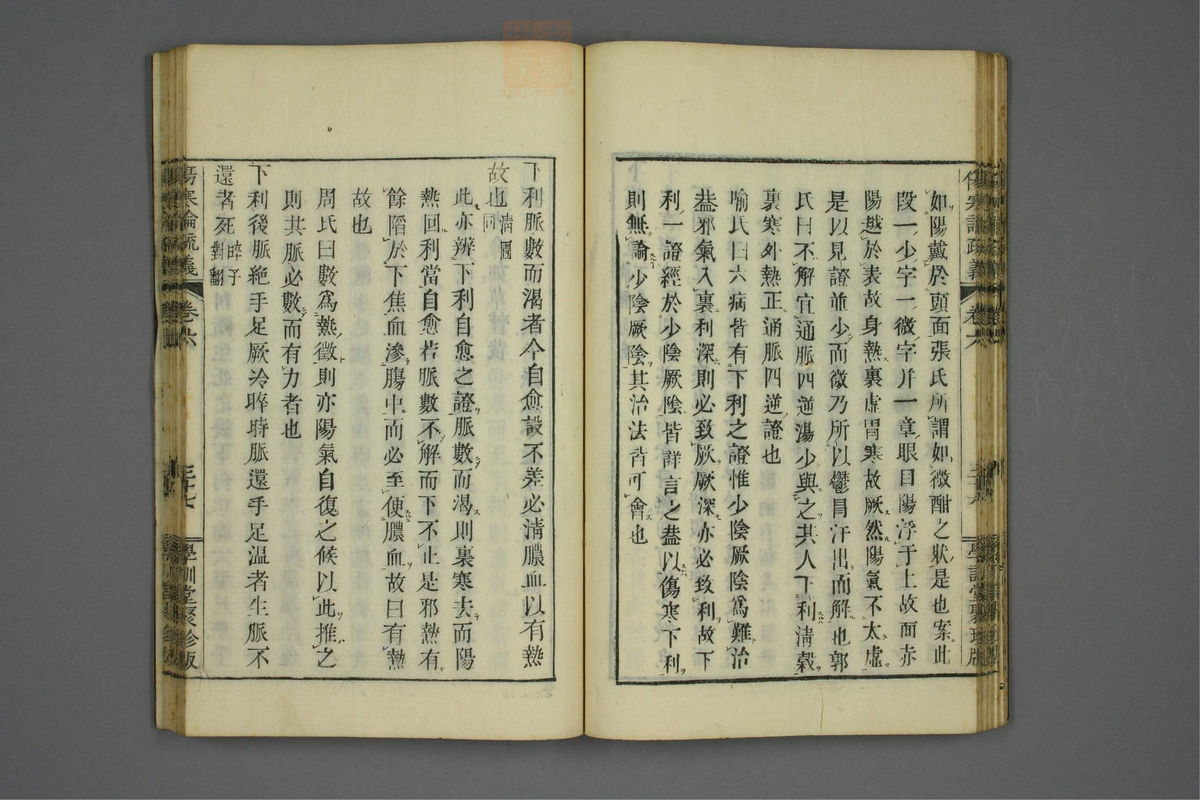 如陽戴於頭面張氏所謂如微酣之狀是也案此
段一少字一微字并一章眼目陽浮于上故面赤
陽越於表故身熱裏虛胃寒故厥然陽氣不太虛
是以見證並少而微乃所以鬱冒汗出而解也郭
氏曰不解宜通脈四逆湯少與之其人下利淸穀
裏寒外熱正通脈四逆證也
喻氏曰六病皆有下利之證惟少陰厥陰爲難治
葢邪氣入裏利深則必致厥厥深亦必致利故下
利一證經於少陰厥陰皆詳言之葢以傷寒下利
則無論少陰厥陰其治法皆可會也
傷寒論疏義
卷六
學訓堂聚珍版
下利脈數而渴者令自愈設不差必淸膿血以有熱
故也淸圊同
此亦辨下利自愈之證脈數而渴則裏寒去而陽
熱回利當自愈若脈數不解而下不止是邪熱有
餘陷於下焦血滲腸中而必至便膿血故曰有熱
故也
周氏曰數爲熱徵則亦陽氣自復之候以此推之
則其脈必數而有力者也
下利後脈絕手足厥冷晬時脈還手足溫者生脈不
還者死晬子對翻
傷寒論疏義
卷六
學訓堂聚珍版